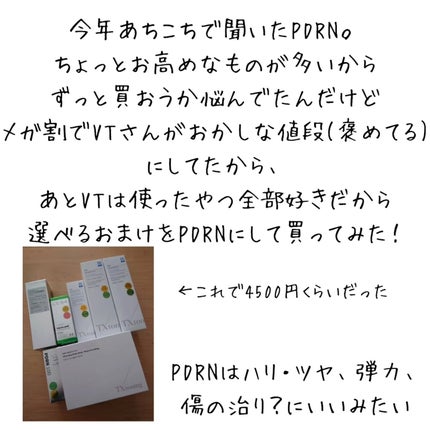 今年あちこちで聞いたPDRN。
ちょっとお高めなものが多いから
ずっと買おうか悩んでたんだけど
メガ割でVTさんがおかしな値段(褒めてる)
にしてたから、
あとVTは使ったやつ全部好きだから
選べるおまけをPDRNにして買ってみた!
←これで4500円くらいだった
PDRNはハリ・ツヤ、弾力、
傷の治り?にいいみたい